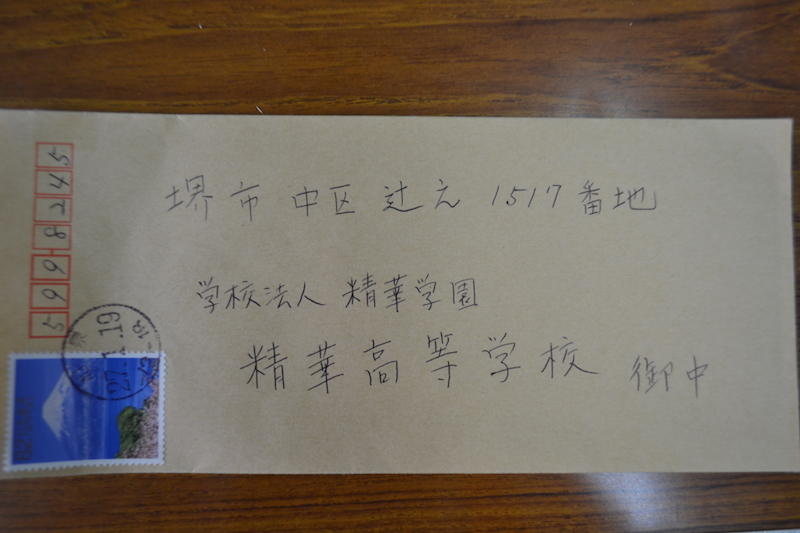 599-8245
堺市 中区 辻元 1517番地
学校法人 精華学園
精華高等学校 御中
27.1.19